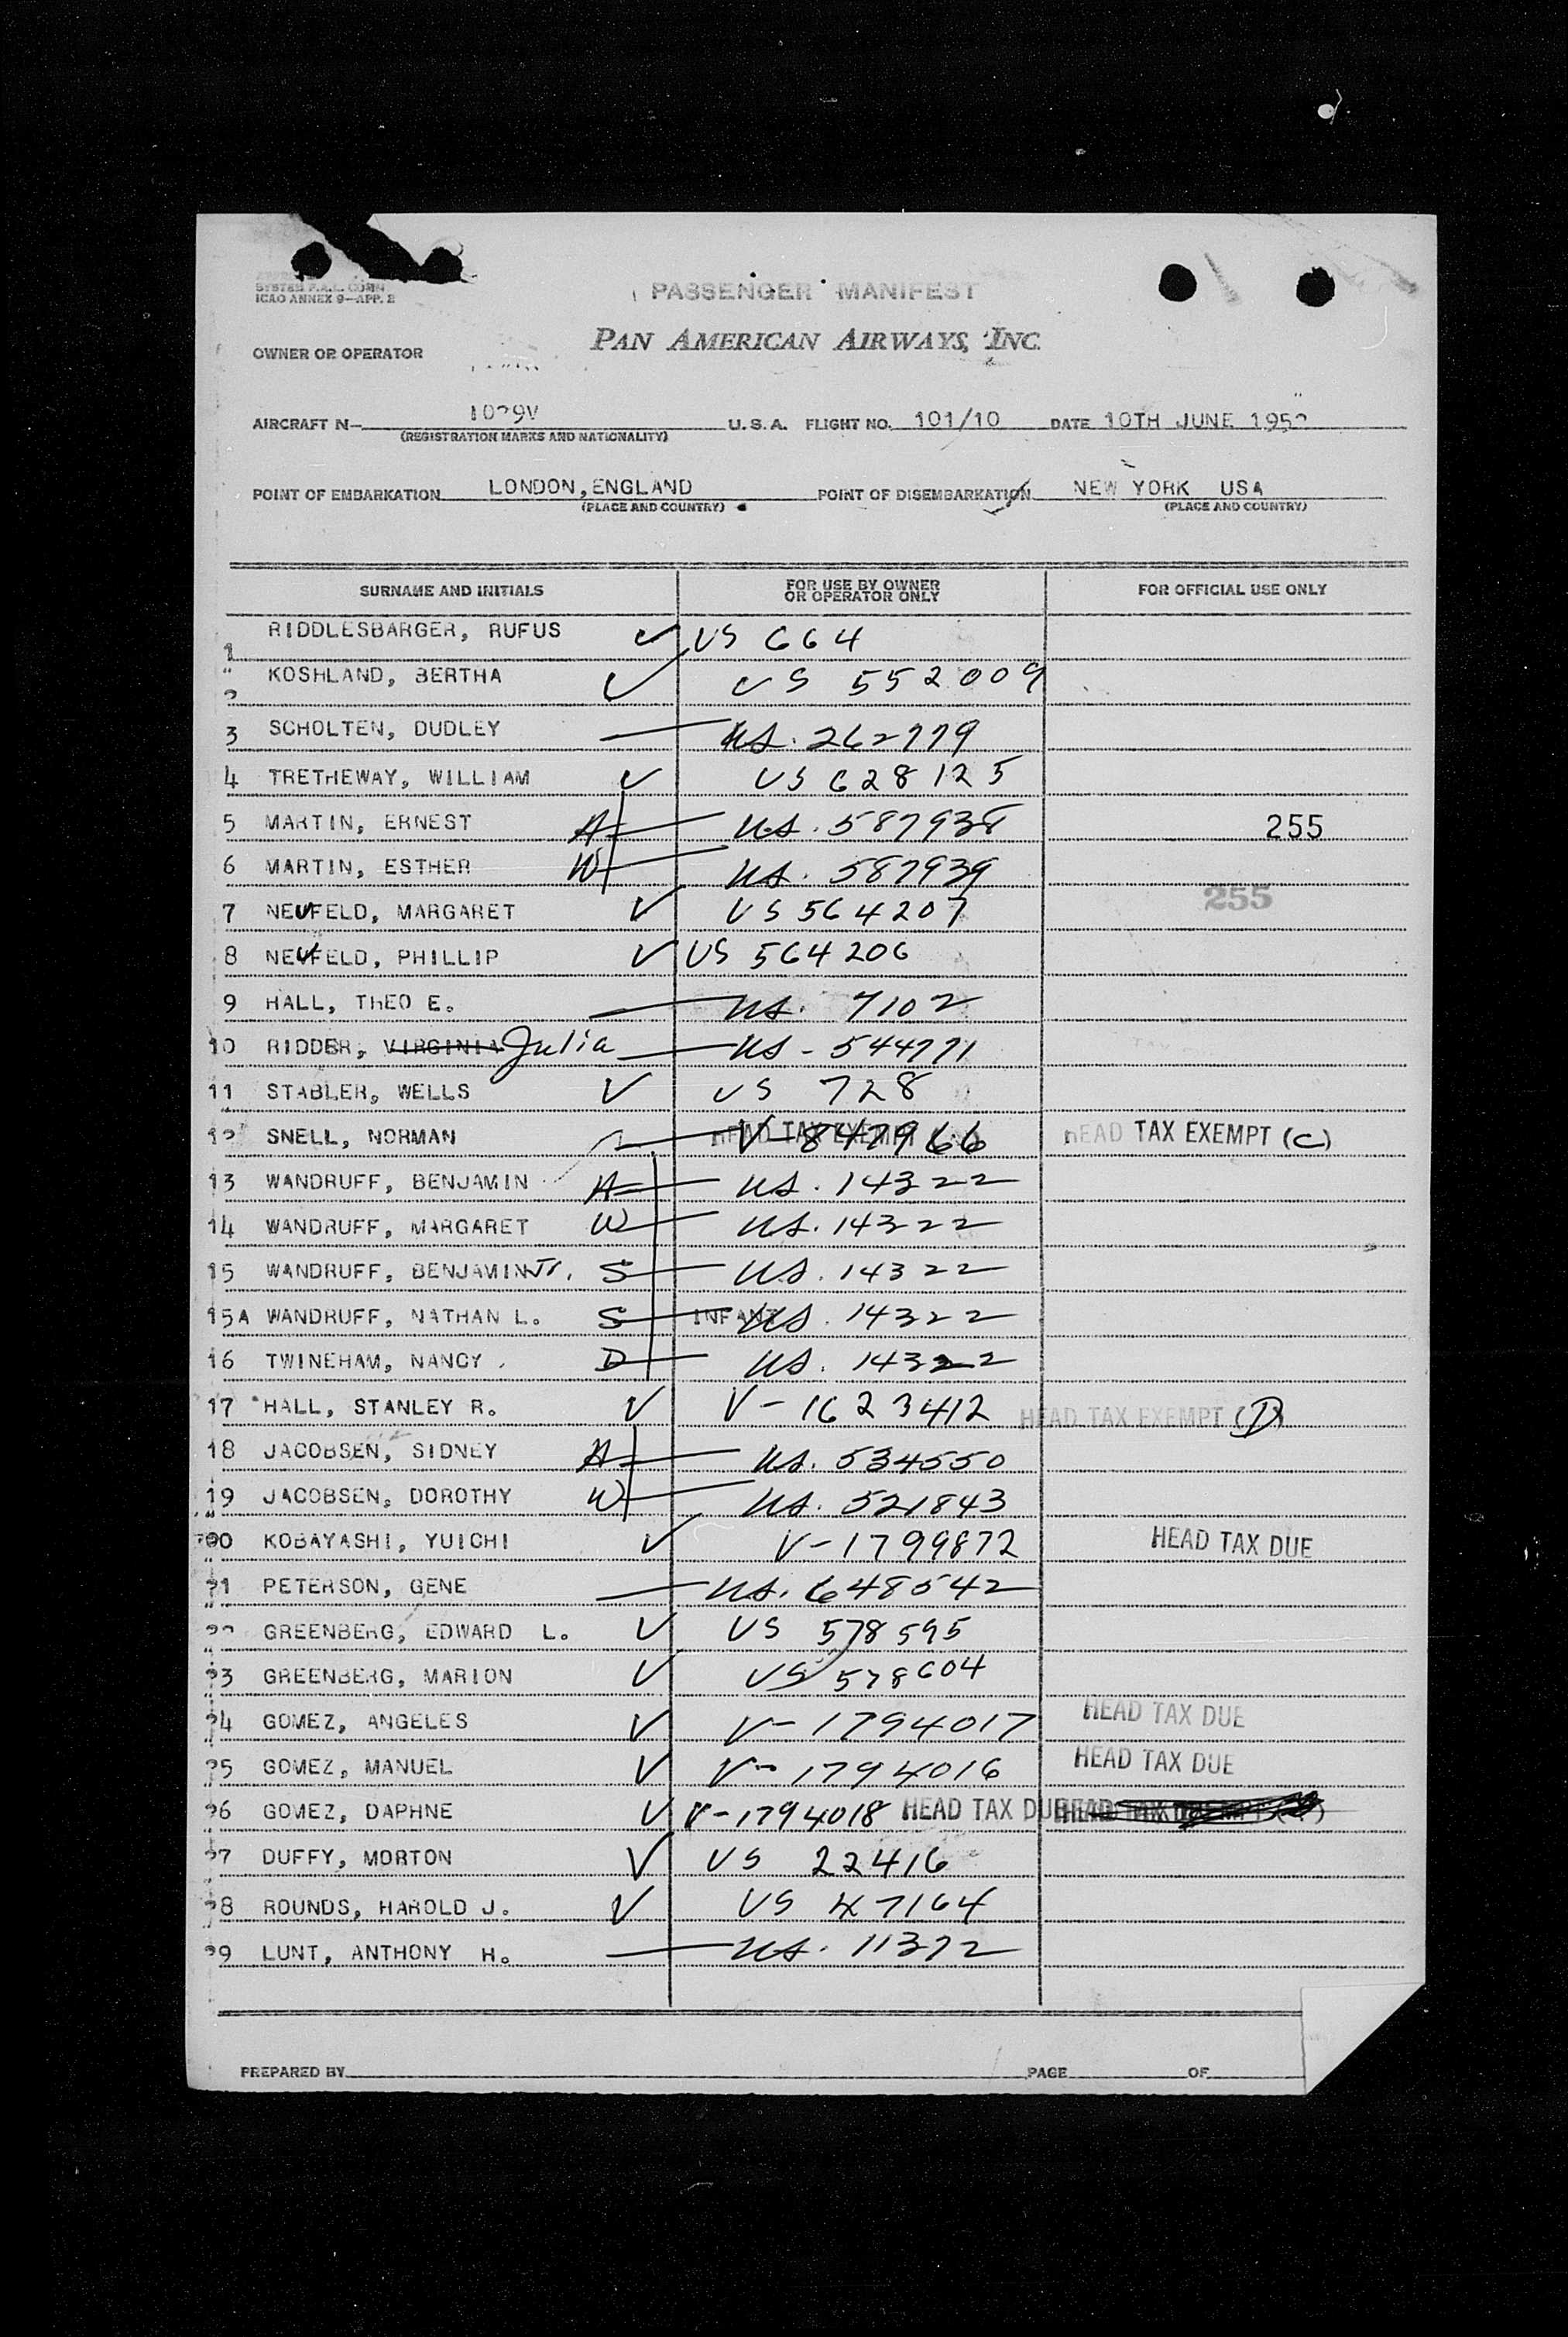 SYSTEM F.A.L. COMM
ICAO ANNEX 9—APP. 2
PASSENGER MANIFEST
PAN AMERICAN AIRWAYS, INC.
OWNER OR OPERATOR
AIRCRAFT N— 1029V U.S.A. FLIGHT NO. 101/10 DATE 10TH JUNE 1952
(REGISTRATION MARKS AND NATIONALITY)
POINT OF EMBARKATION LONDON, ENGLAND POINT OF DISEMBARKATION NEW YORK USA
(PLACE AND COUNTRY) (PLACE AND COUNTRY)
SURNAME AND INITIALS FOR USE BY OWNER OR OPERATOR ONLY FOR OFFICIAL USE ONLY
1 RIDDLESBARGER, RUFUS ✓ US 664
2 KOSHLAND, BERTHA ✓ US 552009
3 SCHOLTEN, DUDLEY — US. 262779
4 TRETHEWAY, WILLIAM ✓ US 628125
5 MARTIN, ERNEST H US. 587938 255
6 MARTIN, ESTHER W US. 587939
255
7 NEUFELD, MARGARET ✓ US 564207
8 NEUFELD, PHILLIP ✓ US 564206
9 HALL, THEO E. — US. 7102
10 RIDDER, VIRGINIA Julia — US - 544771
11 STABLER, WELLS ✓ US 728
12 SNELL, NORMAN HEAD TAX EXEMPT V-847966 HEAD TAX EXEMPT (C)
13 WANDRUFF, BENJAMIN H US. 14322
14 WANDRUFF, MARGARET W US. 14322
15 WANDRUFF, BENJAMIN Jr. S US. 14322
15A WANDRUFF, NATHAN L. S INFANT US. 14322
16 TWINEHAM, NANCY D US. 14322
17 HALL, STANLEY R. ✓ V-1623412 HEAD TAX EXEMPT (D)
18 JACOBSEN, SIDNEY H US. 534550
19 JACOBSEN, DOROTHY W US. 521843
20 KOBAYASHI, YUICHI ✓ V-1799872 HEAD TAX DUE
21 PETERSON, GENE — US. 648542
22 GREENBERG, EDWARD L. ✓ US 578595
23 GREENBERG, MARION ✓ US 578604
24 GOMEZ, ANGELES ✓ V-1794017 HEAD TAX DUE
25 GOMEZ, MANUEL ✓ V-1794016 HEAD TAX DUE
26 GOMEZ, DAPHNE ✓ V-1794018 HEAD TAX DUE
27 DUFFY, MORTON ✓ US 22416
28 ROUNDS, HAROLD J. ✓ US 47164
29 LUNT, ANTHONY H. — US. 11372
PREPARED BY PAGE OF